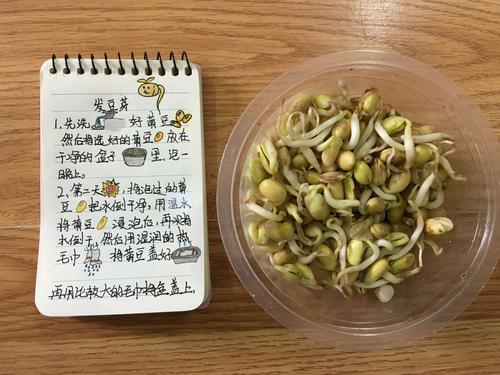 发豆芽
1.先洗 好黄豆
然后将选好的黄豆 放在
干净的盒子 里,泡一
晚上。
2、第二天 将泡过的黄
豆 把水倒干净,用温水
将黄豆 浸泡后,再将
水倒干,然后用湿润的
毛巾 将黄豆盖好
再用比较大的毛巾将盒盖上.